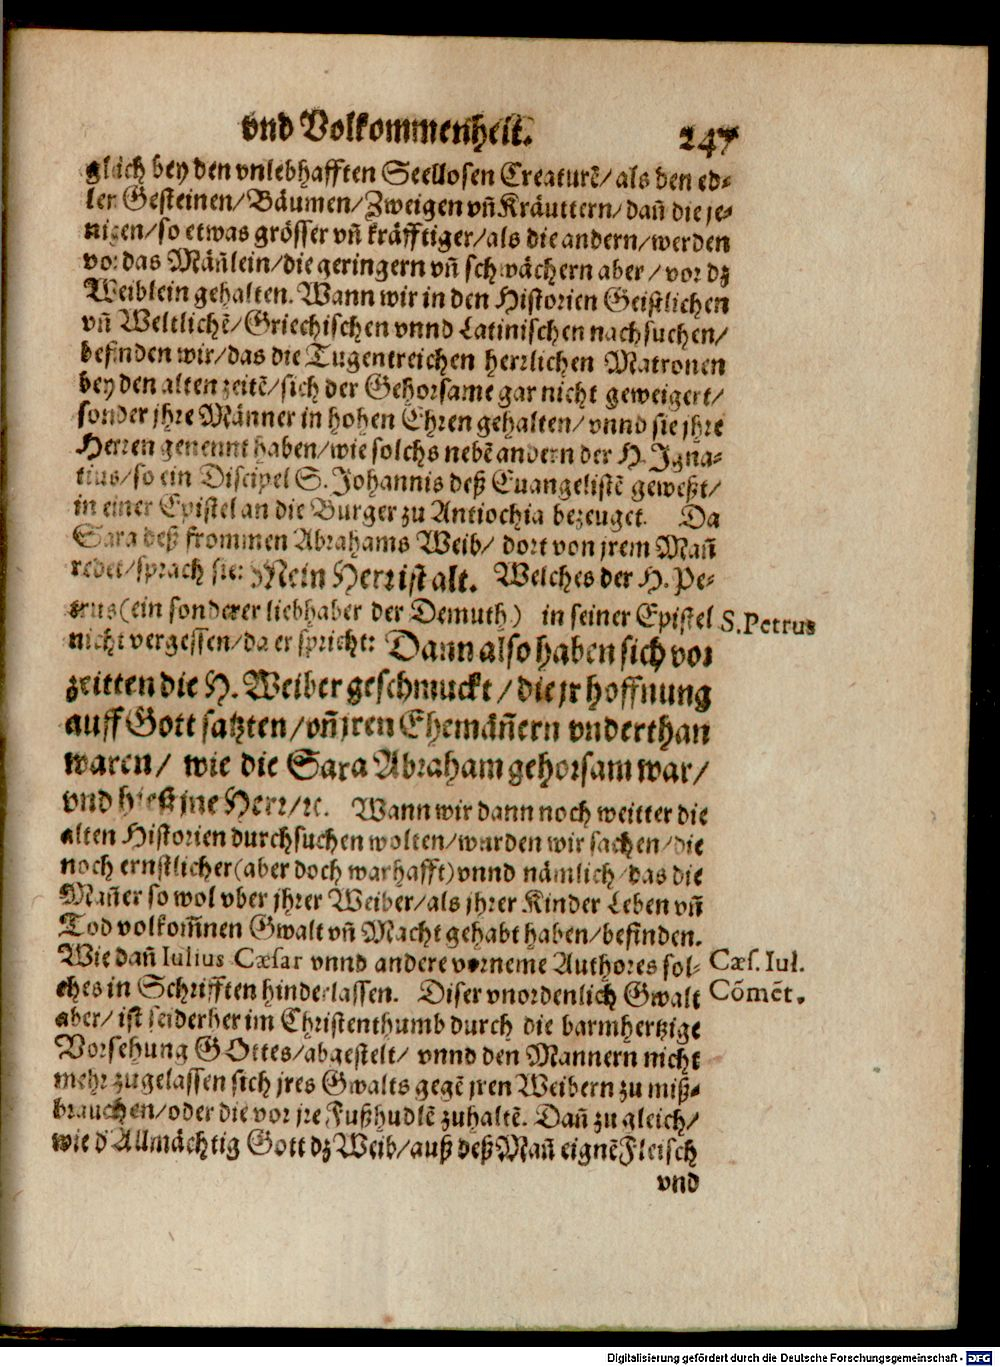 vnd Volkommenheit. 247
gleich bey den vnlebhafften Seellosen Creaturẽ/ als den ed-
len Gesteinen/ Bäumen/ Zweigen vñ Kräuttern/ dañ die je-
nigen/ so etwas grösser vñ kräfftiger/ als die andern/ werden
vor das Mäñlein/ die geringern vñ schwächern aber/ vor dz
Weiblein gehalten. Wann wir in den Historien Geistlichen
vñ Weltlichẽ/ Griechischen vnnd Latinischen nachsuchen/
befinden wir/ das die Tugentreichen herrlichen Matronen
bey den alten zeitẽ/ sich der Gehorsame gar nicht geweigert/
sonder jhre Männer in hohen Ehren gehalten/ vnnd sie jhre
Herren genennt haben/ wie solchs nebẽ andern der H. Igna-
tius/ so ein Discipel S. Johannis deß Euangelistẽ geweßt/
in einer Epistel an die Burger zu Antiochia bezeuget. Da
Sara deß frommen Abrahams Weib/ dort von jrem Mañ
redet/ sprach sie: Mein Herr ist alt. Welches der H. Pe-
trus (ein sonderer liebhaber der Demuth) in seiner Epistel
S. Petrus
nicht vergessen/ da er spricht: Dann also haben sich vor
zeitten die H. Weiber geschmuckt/ die jr hoffnung
auff Gott satzten/ vñ jren Ehemäñern vnderthan
waren/ wie die Sara Abraham gehorsam war/
vnd hieß jne Herr/ ꝛc. Wann wir dann noch weitter die
alten Historien durchsuchen wolten/ wurden wir sachen/ die
noch ernstlicher (aber doch warhafft) vnnd nämlich/ das die
Mañer so wol vber jhrer Weiber/ als jhrer Kinder Leben vñ
Tod volkom̃nen Gwalt vñ Macht gehabt haben/ befinden.
Wie dañ Iulius Cæsar vnnd andere vorneme Authores sol-
Cæs. Iul.
ches in Schrifften hinderlassen. Diser vnordenlich Gwalt
Cõmẽt.
aber/ ist seiderher im Christenthumb durch die barmhertzige
Vorsehung GOttes/ abgestelt/ vnnd den Mannern nicht
mehr zugelassen sich jres Gwalts gegẽ jren Weibern zu miß-
brauchen/ oder die vor jre Fußhudlẽ zuhaltẽ. Dañ zu gleich/
wie d' Allmächtig Gott dz Weib/ auß deß Mañ eignẽ Fleisch
vnd
Digitalisierung gefördert durch die Deutsche Forschungsgemeinschaft - DFG